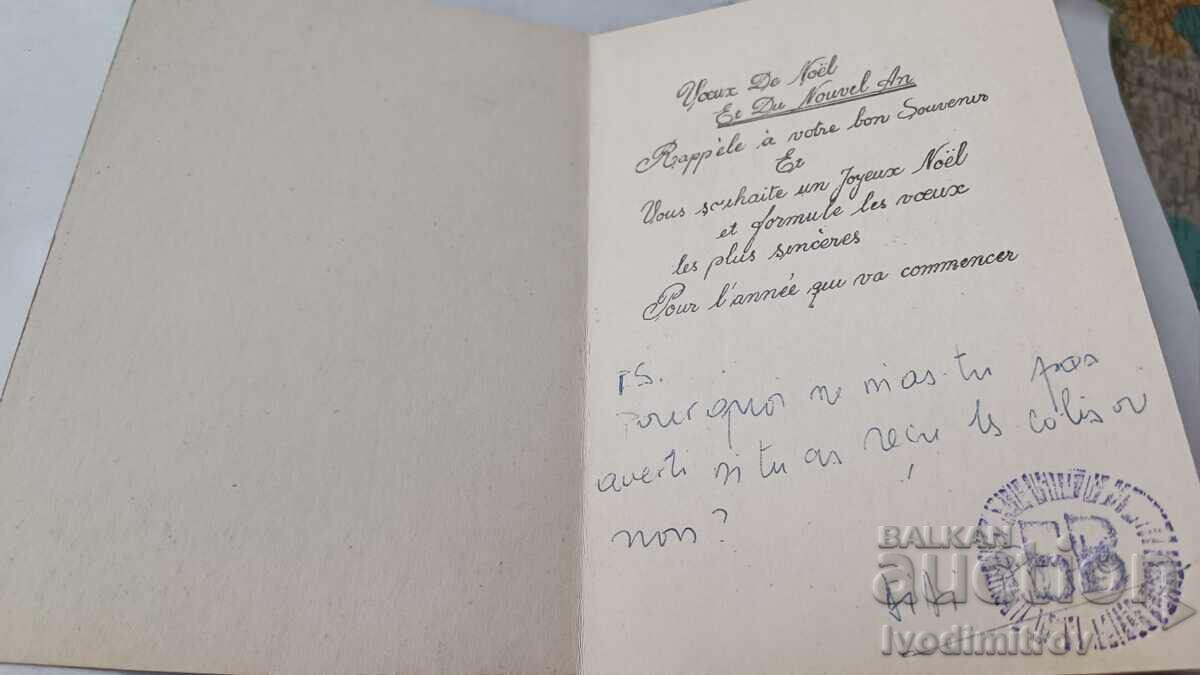 Vœux De Noël
Et Du Nouvel An
Rappèle à votre bon Souvenir
Et
Vous souhaite un Joyeux Noël
et formule les vœux
les plus sincères
Pour l'année qui va commencer
P.S.
Pourquoi ne m'as-tu pas
averti si tu as reçu les colis ou
non?
BB
BALKAN
auction
Ivodimitrov